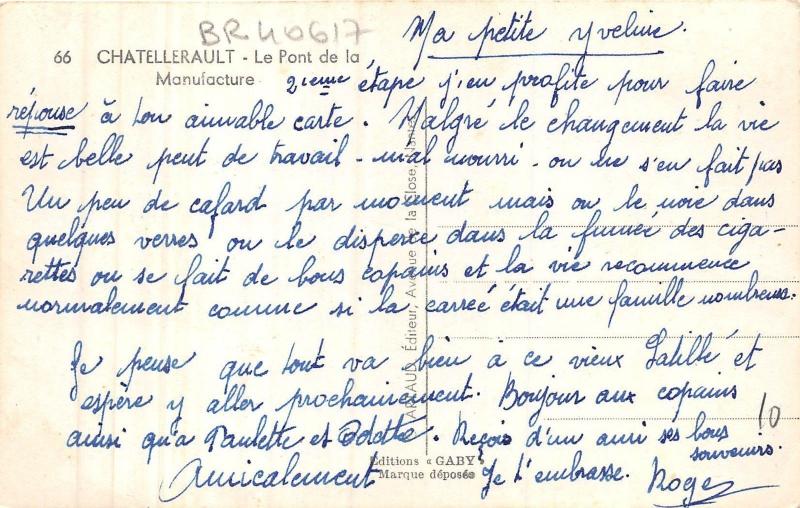 BR40617
Ma petite Yveline.
66 CHATELLERAULT - Le Pont de la
Manufacture
2ieme étape j'en profite pour faire
réponse à ton aimable carte. Malgré le changement la vie
est belle peut de travail - mal nourri - on ne s'en fait pas
Un peu de cafard par moment mais on le noie dans
quelques verres on le disperce dans la fumée des ciga-
rettes on se fait de bons copains et la vie recommence
normalement comme si la carrée était une famille nombreuse.
Je pense que tout va bien à ce vieux Latillé et
espère y aller prochainement. Bonjour aux copains
ainsi qu'a Paulette et Odette. Reçois d'un ami ses bons
souvenirs.
Amicalement Je t'embrasse. Roger
10
Editions « GABY »
Marque déposée
ARTAUD, Éditeur, Avenue de la Close, Nantes